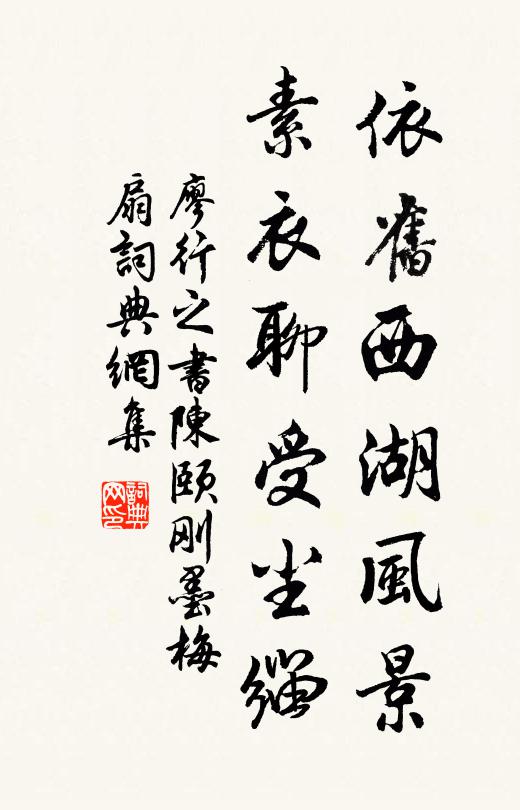 依舊西湖風景
素衣聊受尘缁
廖行之書陳頤剛墨梅
扇詞典網集
詞典
网印